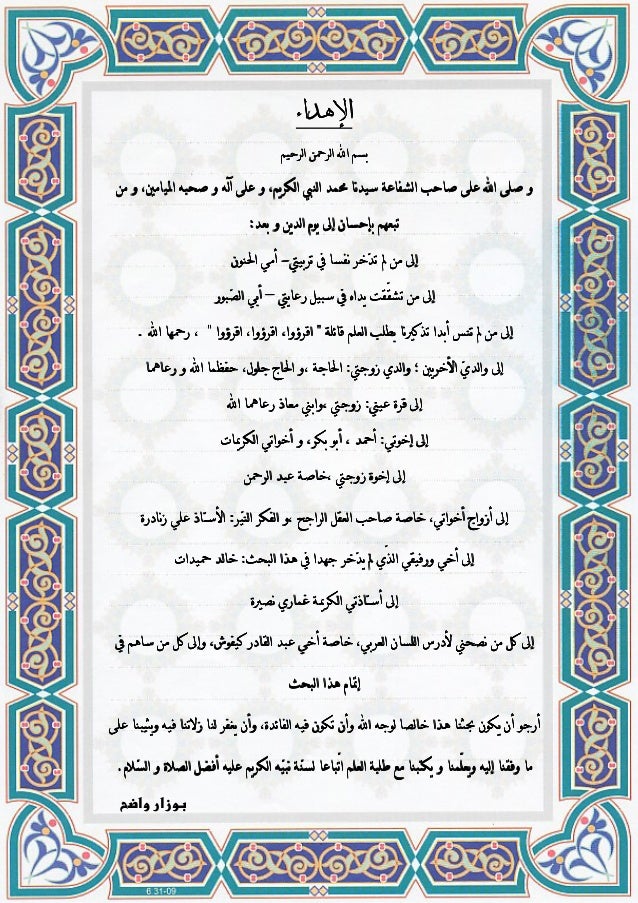 الإهداء
بسم الله الرحمن الرحيم
و صلى الله على صاحب الشفاعة سيدنا محمد النبي الكريم، و على آله و صحبه الميامين، و من
تبعهم بإحسان إلى يوم الدين و بعد:
إلى من لم تدّخر نفسا في تربيتي– أمي الحنون
إلى من تشقّقت يداه في سبيل رعايتي – أبي الصّبور
إلى من لم تنس أبدا تذكيرنا بطلب العلم قائلة " اقرؤوا، اقرؤوا، اقرؤوا " ، رحمها الله .
إلى والديّ الأخريين ؛ والدي زوجتي: الحاجة ،و الحاج جلول، حفظما الله و رعاهما
إلى قرة عيني: زوجتي ،وابني معاذ رعاهما الله
إلى إخوتي: أحمد ، أبو بكر، و أخواتي الكريمات
إلى إخوة زوجتي ،خاصة عبد الرحمن
إلى أزواج أخواتي، خاصة صاحب العقل الراجح ،و الفكر النيّر: الأستاذ علي زنادرة
إلى أخي ورفيقي الذّي لم يدّخر جهدا في هذا البحث: خالد حميدات
إلى أستاذتي الكريمة غماري نصيرة
إلى كل من نصحني لأدرس اللسان العربي، خاصة أخي عبد القادر كيفوش، وإلى كل من ساهم في
إتمام هذا البحث
أرجو أن يكون بحثنا هذا خالصا لوجه الله وأن تكون فيه الفائدة، وأن يغفر لنا زلاتنا فيه ويثيبنا على
ما وفقنا إليه ويعلّمنا و يكتبنا مع طلبة العلم اتّباعا لسنّة نبيّه الكريم عليه أفضل الصلاة و السّلام.
بوزار واضح
6.31-09